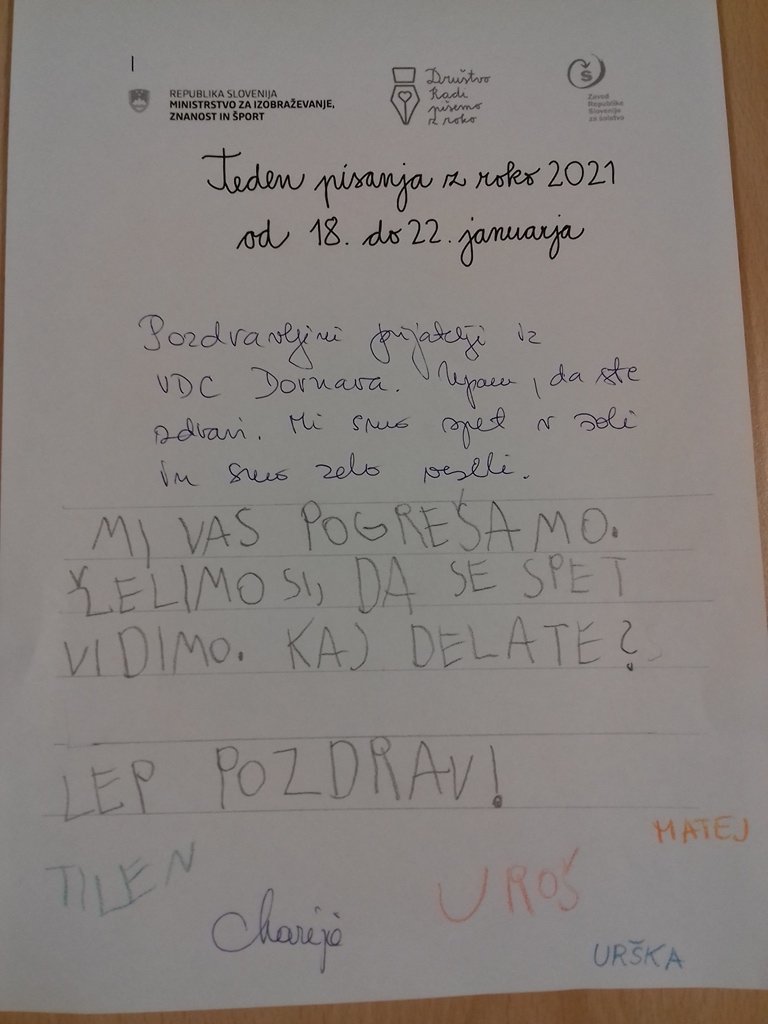 REPUBLIKA SLOVENIJA
MINISTRSTVO ZA IZOBRAŽEVANJE,
ZNANOST IN ŠPORT
Društvo
Radi
pišemo
z roko
Š
Zavod
Republike
Slovenije
za šolstvo
Teden pisanja z roko 2021
od 18. do 22. januarja
Pozdravljeni prijatelji iz
VDC Dornava. Upam, da ste
zdravi. Mi smo spet v šoli
in smo zelo veseli.
MI VAS POGREŠAMO.
ŽELIMO SI, DA SE SPET
VIDIMO. KAJ DELATE?
LEP POZDRAV!
MATEJ
TILEN
UROŠ
URŠKA